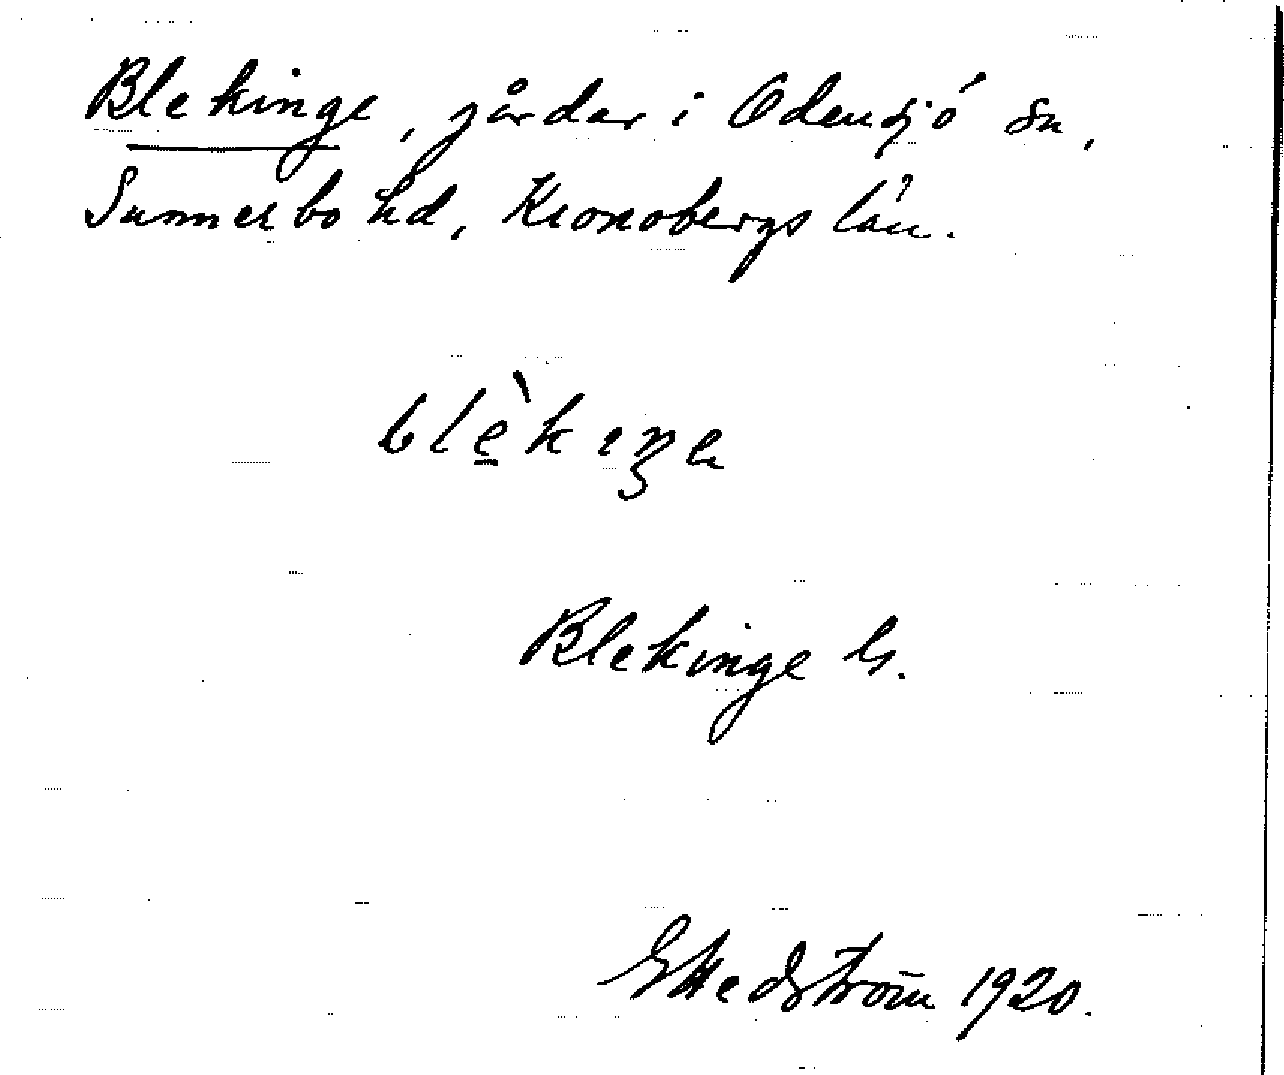 Blekinge, gårdar i Odensjö sn,
Sunnerbo hd, Kronobergs län.
blè̠kıŋa
Blekinge G.
G Hedström 1920.